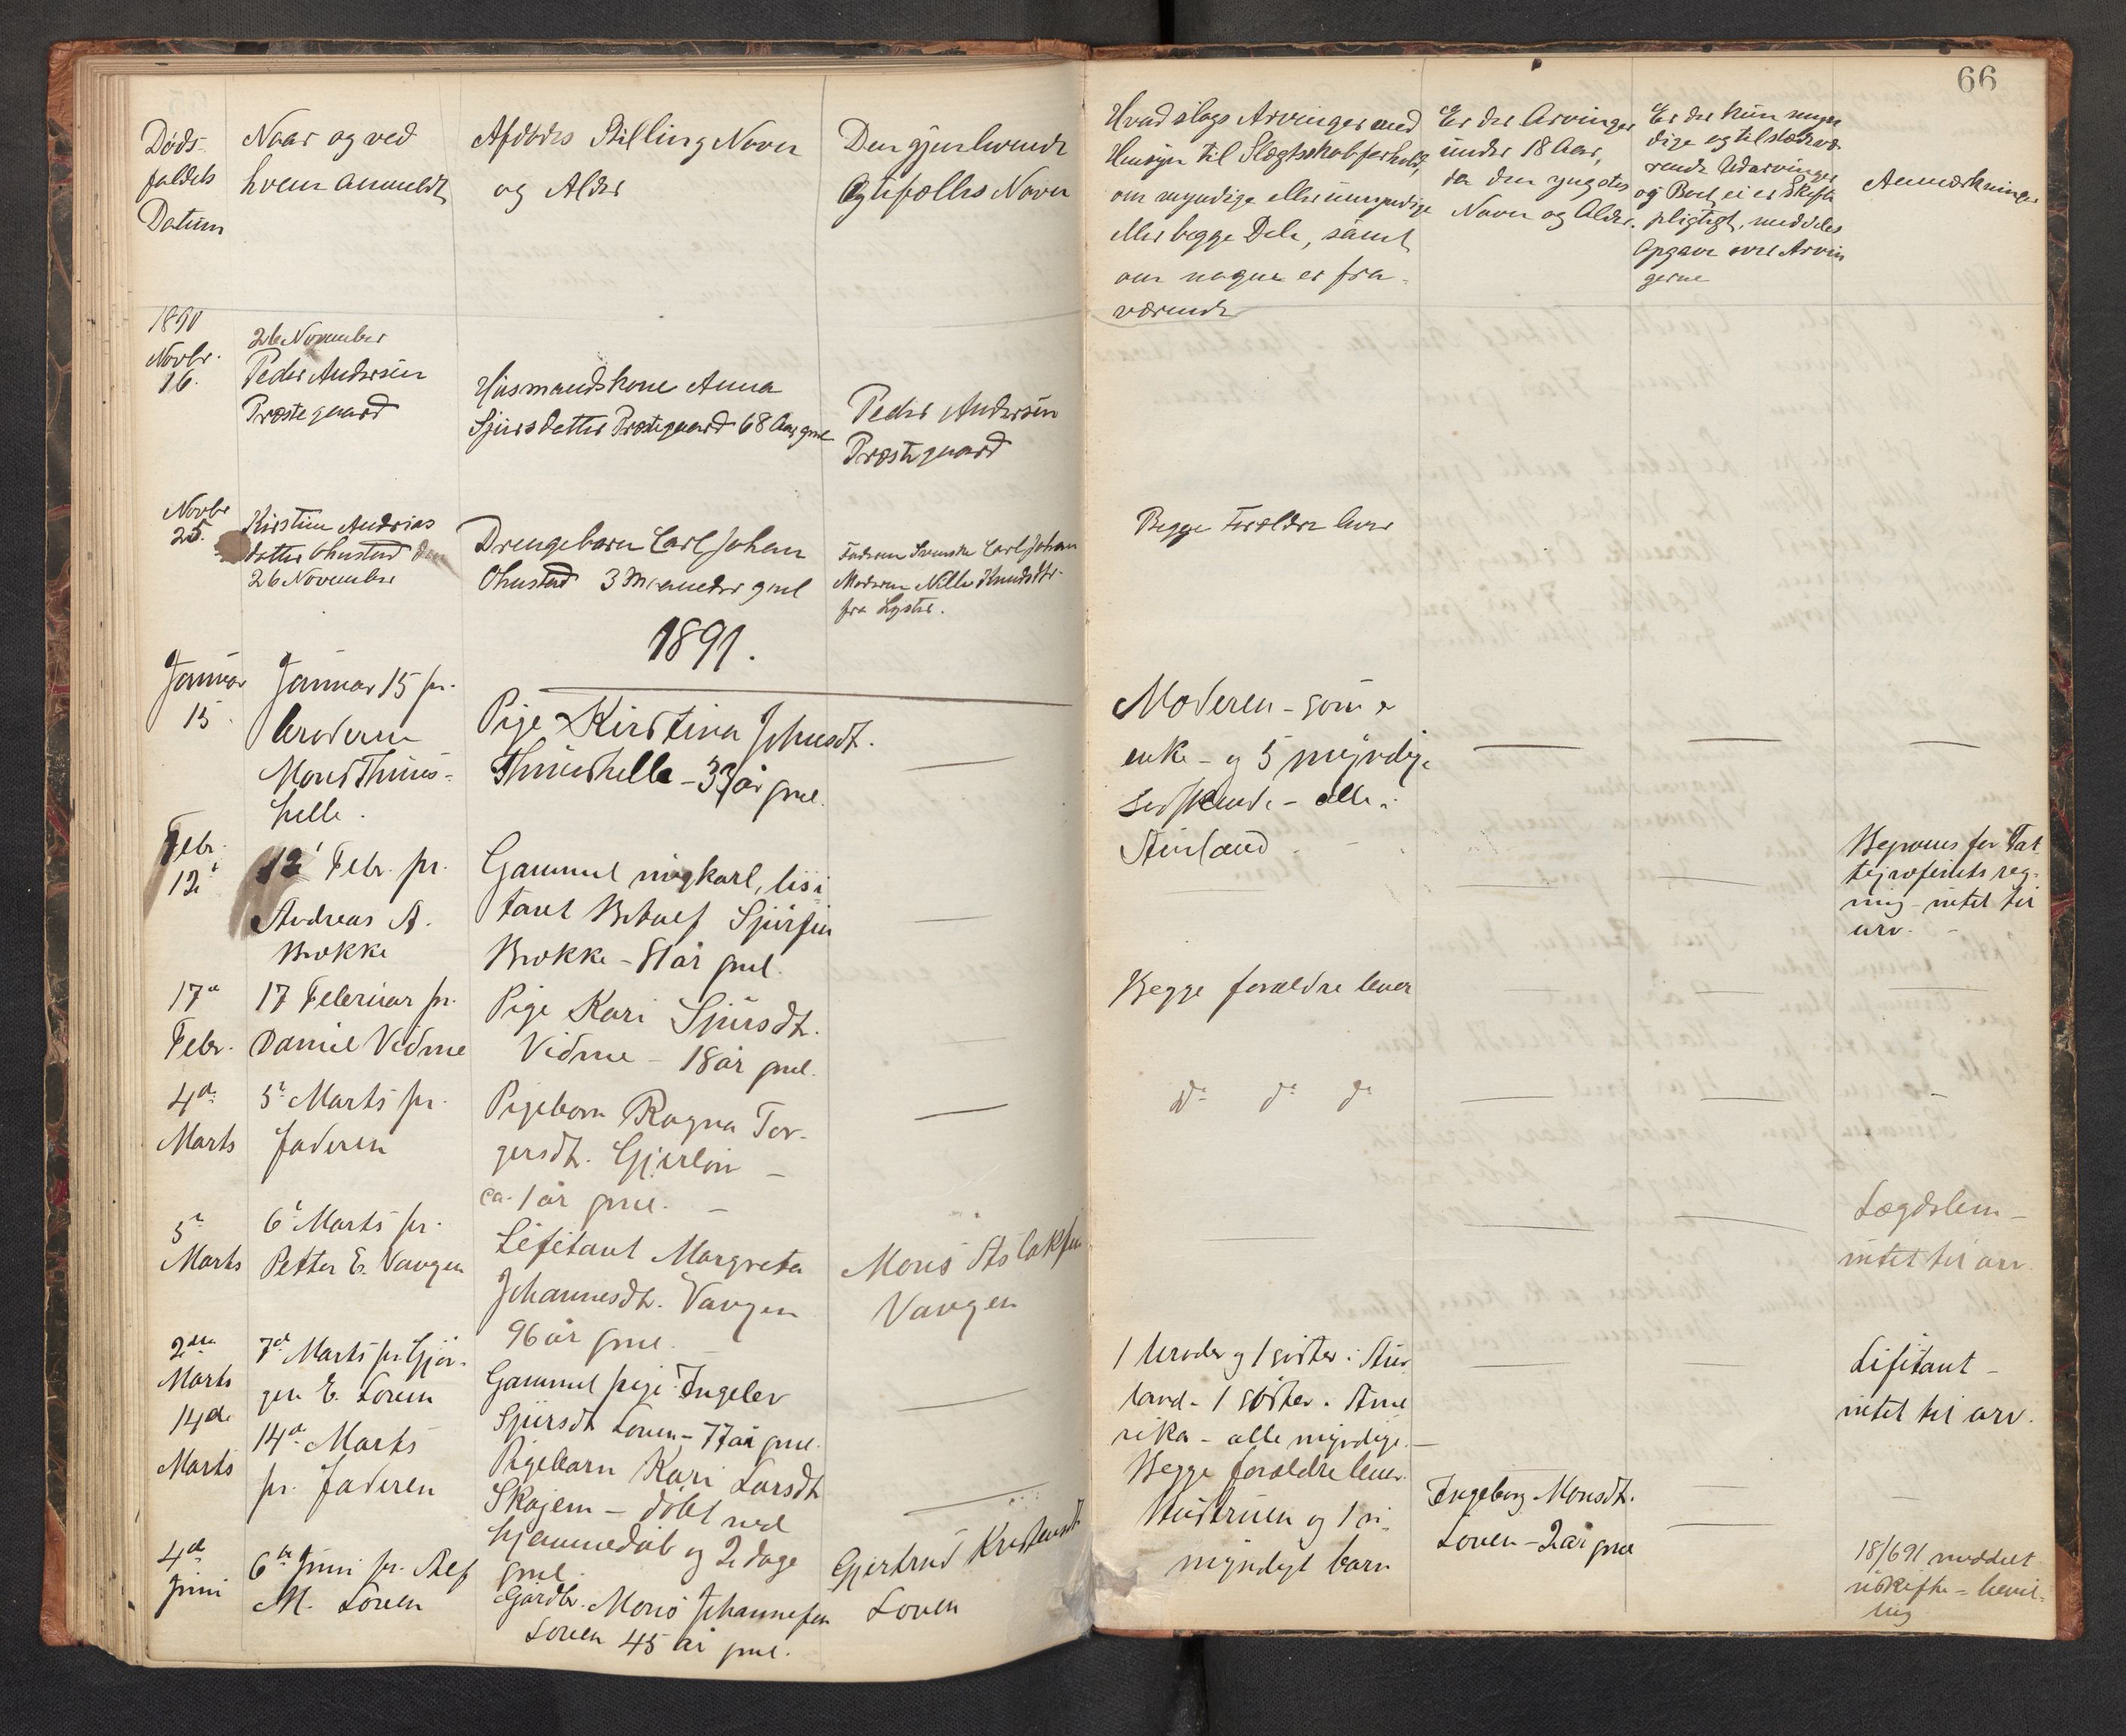 66
Døds-
faldets
Datum
Naar og ved
hvem anmeldt
Afdødes Stilling Navn
og Alder
Den gjenlevende
Ægtefælles Navn
Hvad slags Arvinger med
Hensyn til Slægtskabsforhold,
om myndige eller umyndige
eller begge Dele, samt
om nogen er fra-
værende
Er der Arvinger
under 18 Aar,
da den yngstes
Navn og Alder.
Er der kun myn
dige og tilstedevæ
rende Udarvinger
og Boet ei er Skifte
pligtigt, meddeles
Opgave over Arvin
gerne
Anmærkninger
1890
Novbr.
16.
26 November
Peder Andersen
Præstegaard
Husmandskone Anna
Sjursdatter Præstegaard 68 Aar gml
Peder Andersen
Præstegaard
Novbr
25.
Kirstine Andrias
datter Ohnstad den
26 November
Drengebarn Carl Johan
Ohnstad 3 Maaneder gml
Faderen Svenske Carl Johan
Moderen Nille Knudsdtr.
fra Lyster.
Begge Forældre lever
1891.
Januar
15.
Januar 15 pr.
broderen
Mons Thunes-
helle.
Pige Kirstina Johnsdt.
Thuneshelle - 33 år gml.
Moderen - som er
enke - og 5 myndige
Sødskende - alle i
Aurland
Febr.
12
12 Febr. pr.
Andreas A.
Brekke
Gammel ungkarl, lisi
tant Botolf Sjursen
Brekke - 81 år gml.
tigvæsenets reg-
ning - intet til
arv.
17de
Febr.
17 Februar pr.
Daniel Vidme
Pige Kari Sjursdt.
Vidme - 18 år gml.
Begge forældre lever
4de
Marts
5te Marts pr.
faderen
Pigebarn Ragna Tor-
gersdt. Gjerløv -
ca. 1 år gml. -
do do do
5te
Marts
6te Marts pr.
Petter E. Vangen
Lisitant Margreta
Johannesdt. Vangen
96 år gml.
Mons Aslaksen
Vangen
Lægdslem -
intet til arv.
2den
Marts
7de Marts pr. Gjør-
gen E. Loven
Gammel pige Ingelev
Sjursdt Loven - 77 år gml.
1 broder og 1 søster i Aur
land - 1 søster i Ame
rika - alle myndige. -
Lisitant -
intet til arv.
14de
Marts
14de Marts
pr. faderen
Pigebarn Kari Larsdt
Skajem - døbt ved
hjemmedåb og 2 dage
gml.
Begge forældre lever.
4de
Juni
6te Juni pr. Alf
M. Loven
Gårdbr. Mons Johannesen
Loven 45 år gml.
Gjertrud Kristensdt
Loven
Hustruen og 1 u-
myndigt barn
Ingeborg Monsdt.
Loven - 2 år gml
18/6 91 meddelt
uskifte - bevil-
ling